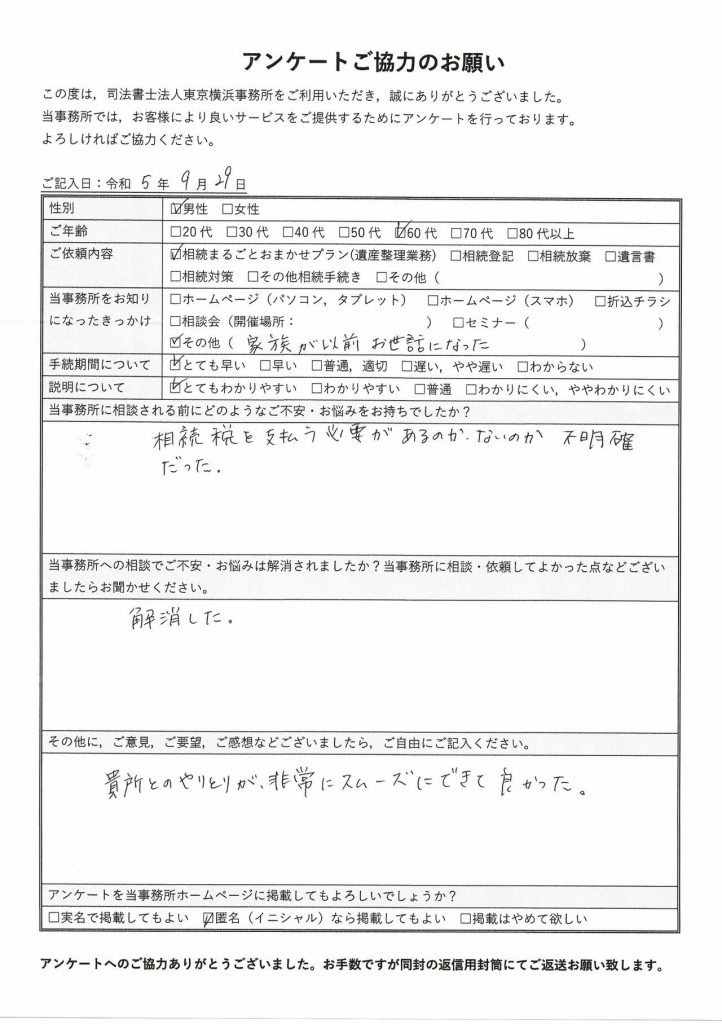 アンケートご協力のお願い
この度は，司法書士法人東京横浜事務所をご利用いただき，誠にありがとうございました。
当事務所では，お客様により良いサービスをご提供するためにアンケートを行っております。
よろしければご協力ください。
ご記入日：令和 5 年 9 月 29 日
性別 ☑男性 □女性
ご年齢 □20 代 □30 代 □40 代 □50 代 ☑60 代 □70 代 □80 代以上
ご依頼内容 ☑相続まるごとおまかせプラン(遺産整理業務) □相続登記 □相続放棄 □遺言書
□相続対策 □その他相続手続き □その他（ ）
当事務所をお知り □ホームページ（パソコン，タブレット） □ホームページ（スマホ） □折込チラシ
になったきっかけ □相談会（開催場所： ） □セミナー（ ）
☑その他（ 家族が以前 お世話になった ）
手続期間について ☑とても早い □早い □普通，適切 □遅い，やや遅い □わからない
説明について ☑とてもわかりやすい □わかりやすい □普通 □わかりにくい，ややわかりにくい
当事務所に相談される前にどのようなご不安・お悩みをお持ちでしたか？
相続税を支払う必要があるのか、ないのか 不明確
だった。
当事務所への相談でご不安・お悩みは解消されましたか？当事務所に相談・依頼してよかった点などござい
ましたらお聞かせください。
解消した。
その他に，ご意見，ご要望，ご感想などございましたら，ご自由にご記入ください。
貴所とのやりとりが、非常にスムーズにできて良かった。
アンケートを当事務所ホームページに掲載してもよろしいでしょうか？
□実名で掲載してもよい ☑匿名（イニシャル）なら掲載してもよい □掲載はやめて欲しい
アンケートへのご協力ありがとうございました。お手数ですが同封の返信用封筒にてご返送お願い致します。